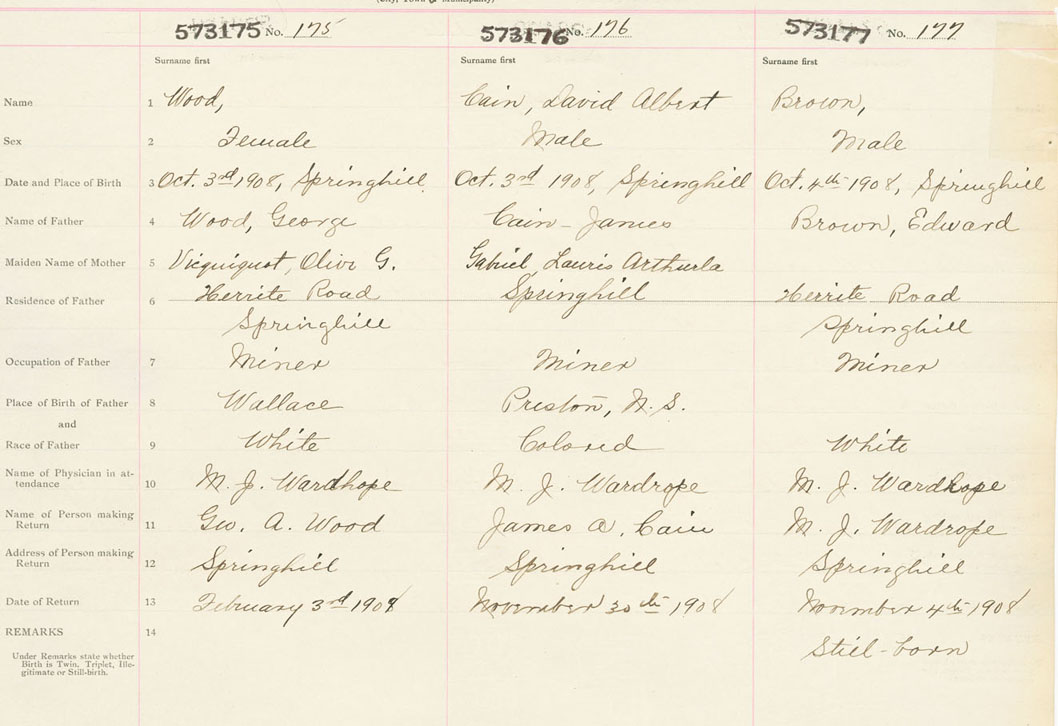 (City, Town or Municipality)
573175 No. 175 573176 No. 176 573177 No. 177
Surname first Surname first Surname first
Name 1 Wood, Cain, David Albert Brown,
Sex 2 Female Male Male
Date and Place of Birth 3 Oct. 3rd 1908, Springhill. Oct. 3rd 1908, Springhill Oct. 4th 1908, Springhill
Name of Father 4 Wood, George Cain - James Brown, Edward
Maiden Name of Mother 5 Vicquiquot, Olive G. Gabriel, Lauris Arthurla
Residence of Father 6 Herrite Road Springhill Herrite Road
Springhill Springhill
Occupation of Father 7 Miner Miner Miner
Place of Birth of Father 8 Wallace Preston, N.S.
and
Race of Father 9 White Colored White
Name of Physician in at-
tendance 10 M. J. Wardhope M. J. Wardrope M. J. Wardhope
Name of Person making
Return 11 Geo. A. Wood James A. Cain M. J. Wardrope
Address of Person making
Return 12 Springhill Springhill Springhill
Date of Return 13 February 3rd 1909 November 30th 1908 November 4th 1908
REMARKS 14 Still-born
Under Remarks state whether
Birth is Twin, Triplet, Ille-
gitimate or Still-birth.